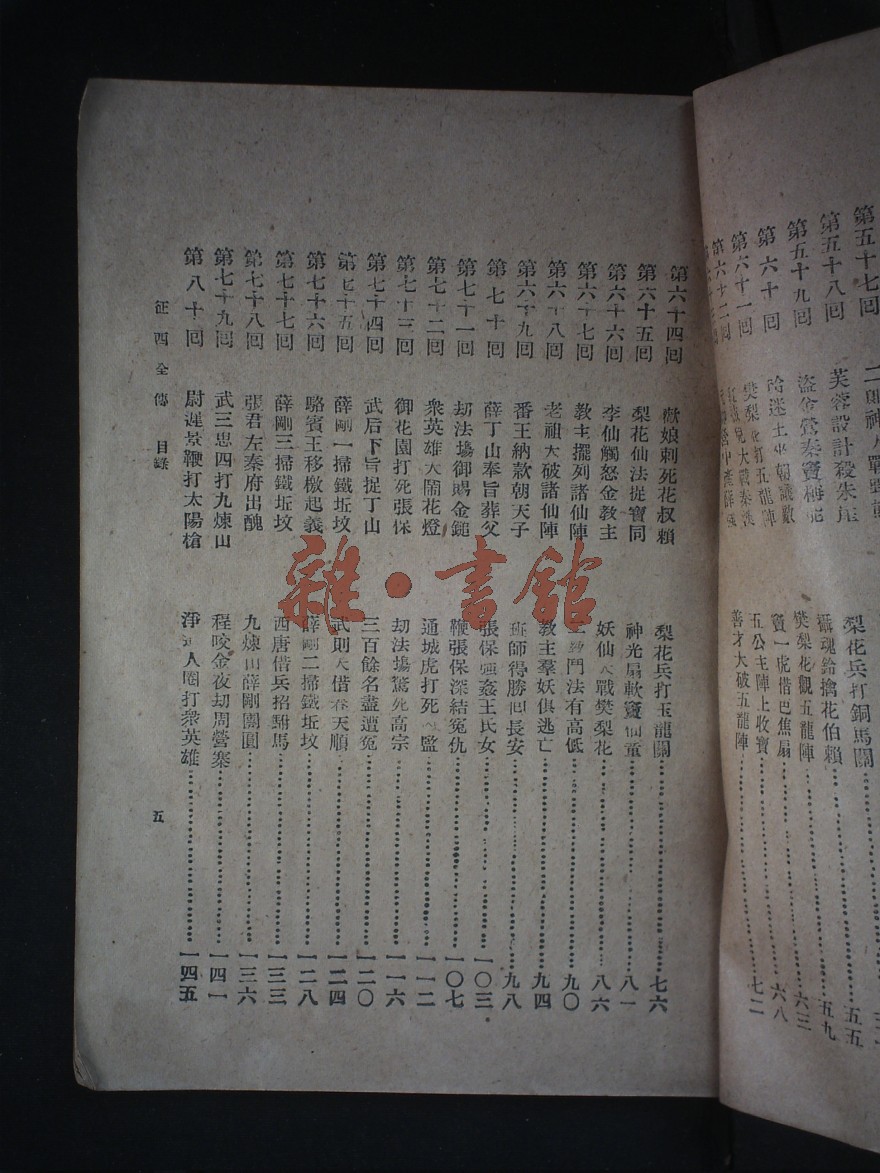 第五十七回
第五十八回 芙蓉設計殺朱崖 梨花兵打銅馬關 五五
第五十九回 盜金營秦寶梅 攝魂鈴擒花伯賴 五九
第六十回 哈迷土 朝議敵 樊梨花觀五龍陣 六三
第六十一回 樊梨 打五龍陣 竇一虎借巴焦扇 六八
第六十二回 兒大戰秦漢 五公主陣上收寶 七二
善才大破五龍陣
第六十四回 獻娘刺死花叔賴 梨花兵打玉龍關 七六
第六十五回 梨花仙法捉寶同 神光扇軟竇仙童 八一
第六十六回 李仙觸怒金教主 妖仙大戰樊梨花 八六
第六十七回 教主擺列諸仙陣 鬥法有高低 九〇
第六十八回 老祖大破諸仙陣 教主羣妖俱逃亡 九四
第六十九回 番王納款朝天子 班師得勝回長安 九八
第七十回 薛丁山奉旨葬父 張保強姦王氏女 一〇三
第七十一回 刧法塲御賜金鎚 鞭張保深結冤仇 一〇七
第七十二回 衆英雄大鬧花燈 通城虎打死 監 一一二
第七十三回 御花園打死張保 刧法塲驚死高宗 一一六
第七十四回 武后下旨捉丁山 三百餘名盡遭冤 一二〇
第七十五回 薛剛一掃鐵坵坟 武則天借春天順 一二四
第七十六回 駱賓王移檄起義 薛剛二掃鐵坵坟 一二八
第七十七回 薛剛三掃鐵坵坟 西唐借兵招駙馬 一三三
第七十八回 張君左秦府出醜 九煉山薛剛團圓 一三六
第七十九回 武三思四打九煉山 程咬金夜刧周營寨 一四一
第八十回 尉遲景鞭打太陽槍 淨 人圈打衆英雄 一四五
征西全傳 目錄 五
雜·書館